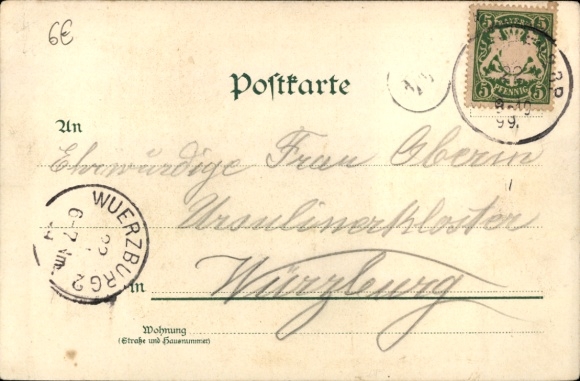 6€
5 BAYERN 5
5 PFENNIG 5
99.
Postkarte
An
Ehrwürdige Frau Oberin
Ursulinerkloster
in Würzburg
WUERZBURG 2
22
6-7 Nm.
Wohnung
(Straße und Hausnummer)